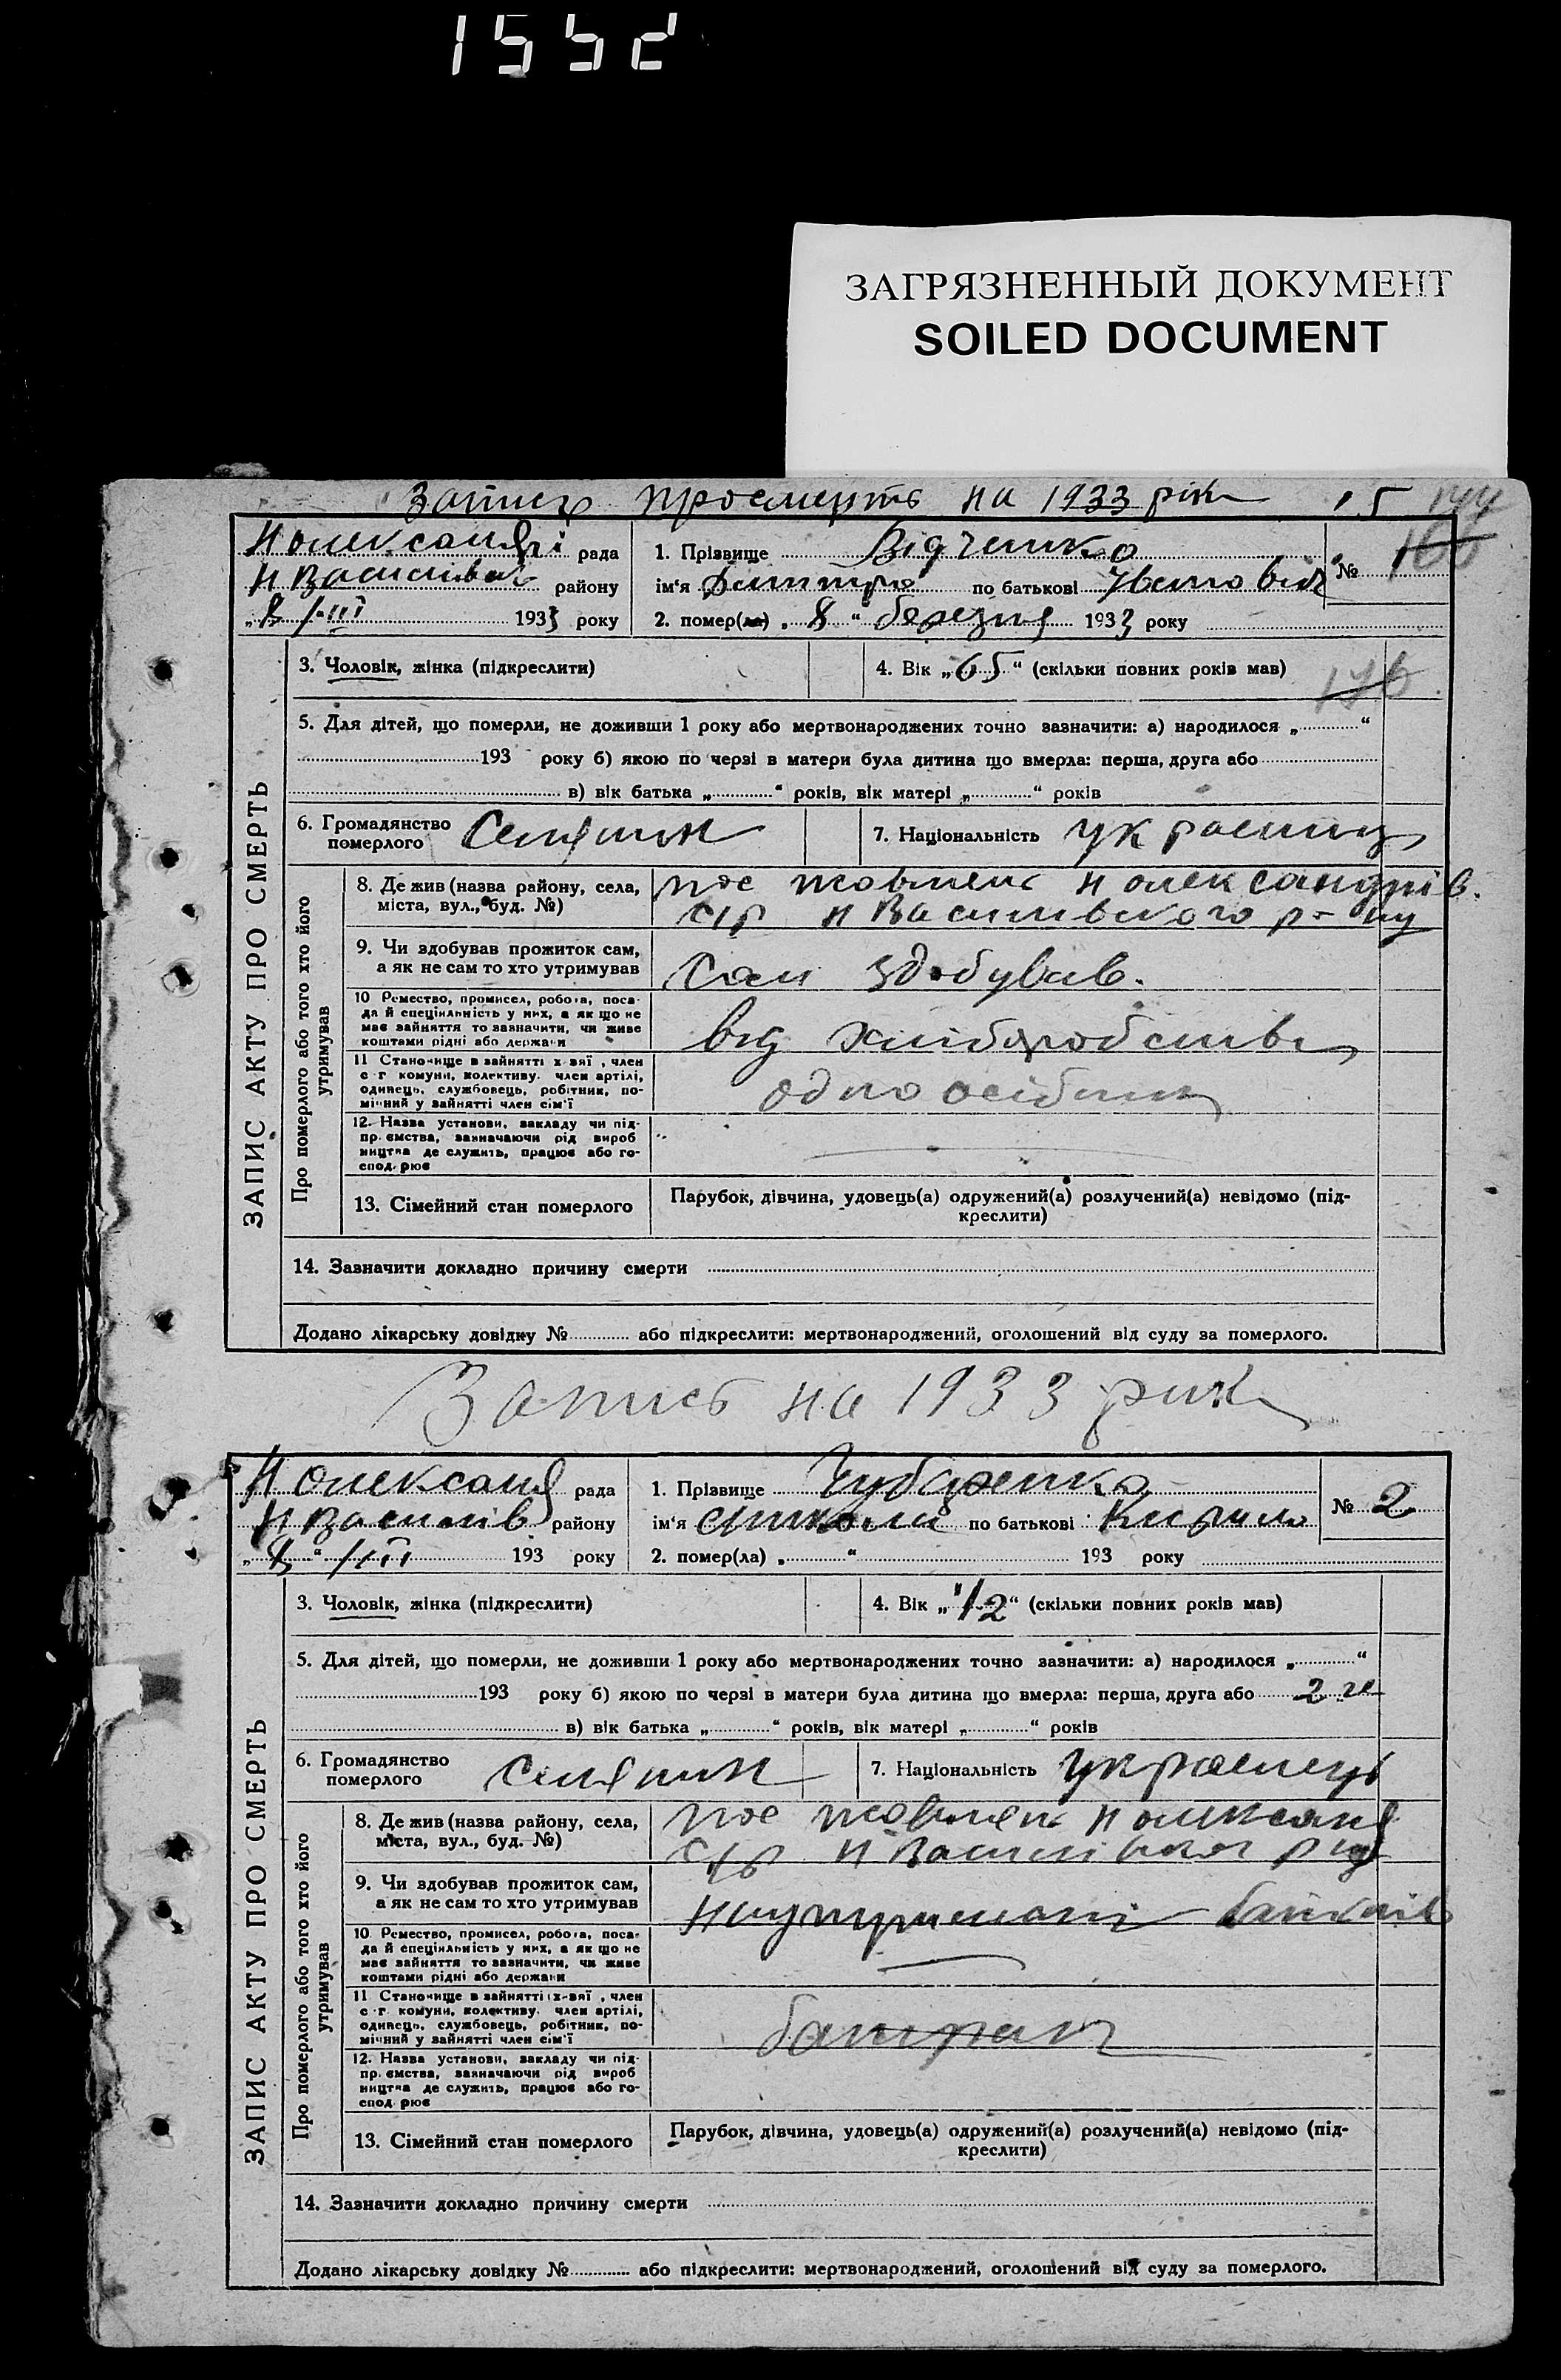 1552
ЗАГРЯЗНЕННЫЙ ДОКУМЕНТ
SOILED DOCUMENT
Запись про смерть на 1933 рік 15 144
Н олександрі рада
Н Василівськ району
„ 8 " /-III 1933 року
1. Прізвище Відченко
ім'я Дмитро по батькові Івано віч
2. помер(ла) „ 8 " березня 1933 року
№ 160
3. Чоловік, жінка (підкреслити)
4. Вік „ 65 " (скільки повних років мав)
176
5. Для дітей, що померли, не доживши 1 року або мертвонароджених точно зазначити: а) народилося „ "
193 року б) якою по черзі в матери була дитина що вмерла: перша, друга або
в) вік батька „ " років, вік матері „ " років
6. Громадянство померлого Селянин
7. Національність українець
ЗАПИС АКТУ ПРО СМЕРТЬ
Про померлого або того хто його утримував
8. Де жив (назва району, села,
міста, вул., буд. №)
пос жовтень Н олександрів.
с/р Н Василивского р-ну
9. Чи здобував прожиток сам,
а як не сам то хто утримував
Сам здобував.
10 Ремество, промисел, робота, поса-
да й спеціяльність у них, а як що не
має зайняття то зазначити, чи живе
коштами рідні або держави
від хліборобства
11 Становище в зайнятті х-вяї, член
с-г комуни, колективу. член артілі,
одинець, службовець, робітник, по-
мічний у зайнятті член сім'ї
одноосібник
12. Назва установи, закладу чи під-
пр. ємства, зазначаючи рід вироб
ництва де служить, працює або го-
спод. рює
13. Сімейний стан померлого
Парубок, дівчина, удовець(а) одружений(а) розлучений(а) невідомо (під-
креслити)
14. Зазначити докладно причину смерти
Додано лікарську довідку № або підкреслити: мертвонароджений, оголошений від суду за померлого.
Запись на 1933 рик
Н олександ рада
Н Василів району
„ 8 " /III 193 року
1. Прізвище Чубаренко
ім'я Миколай по батькові Кирило
2. помер(ла) „ " 193 року
№ 2
3. Чоловік, жінка (підкреслити)
4. Вік „ 1/2 " (скільки повних років мав)
5. Для дітей, що померли, не доживши 1 року або мертвонароджених точно зазначити: а) народилося „ "
193 року б) якою по черзі в матери була дитина що вмерла: перша, друга або 2 ге
в) вік батька „ " років, вік матері „ " років
6. Громадянство
померлого Селянин
7. Національність українець
ЗАПИС АКТУ ПРО СМЕРТЬ
Про померлого або того хто його утримував
8. Де жив (назва району, села,
міста, вул., буд. №)
пос жовтень Н олександ
с/р Н Василівског р ну
9. Чи здобував прожиток сам,
а як не сам то хто утримував
На утриманні батьків
10 Ремество, промисел, робота, поса-
да й спеціяльність у них, а як що не
має зайняття то зазначити, чи живе
коштами рідні або держави
11 Становище в зайнятті х-вяї, член
с-г комуни, колективу. член артілі,
одинець, службовець, робітник, по-
мічний у зайнятті член сім'ї
батрак
12. Назва установи, закладу чи під-
пр. ємства, зазначаючи рід вироб
ництва де служить, працює або го-
спод. рює
13. Сімейний стан померлого
Парубок, дівчина, удовець(а) одружений(а) розлучений(а) невідомо (під-
креслити)
14. Зазначити докладно причину смерти
Додано лікарську довідку № або підкреслити: мертвонароджений, оголошений від суду за померлого.